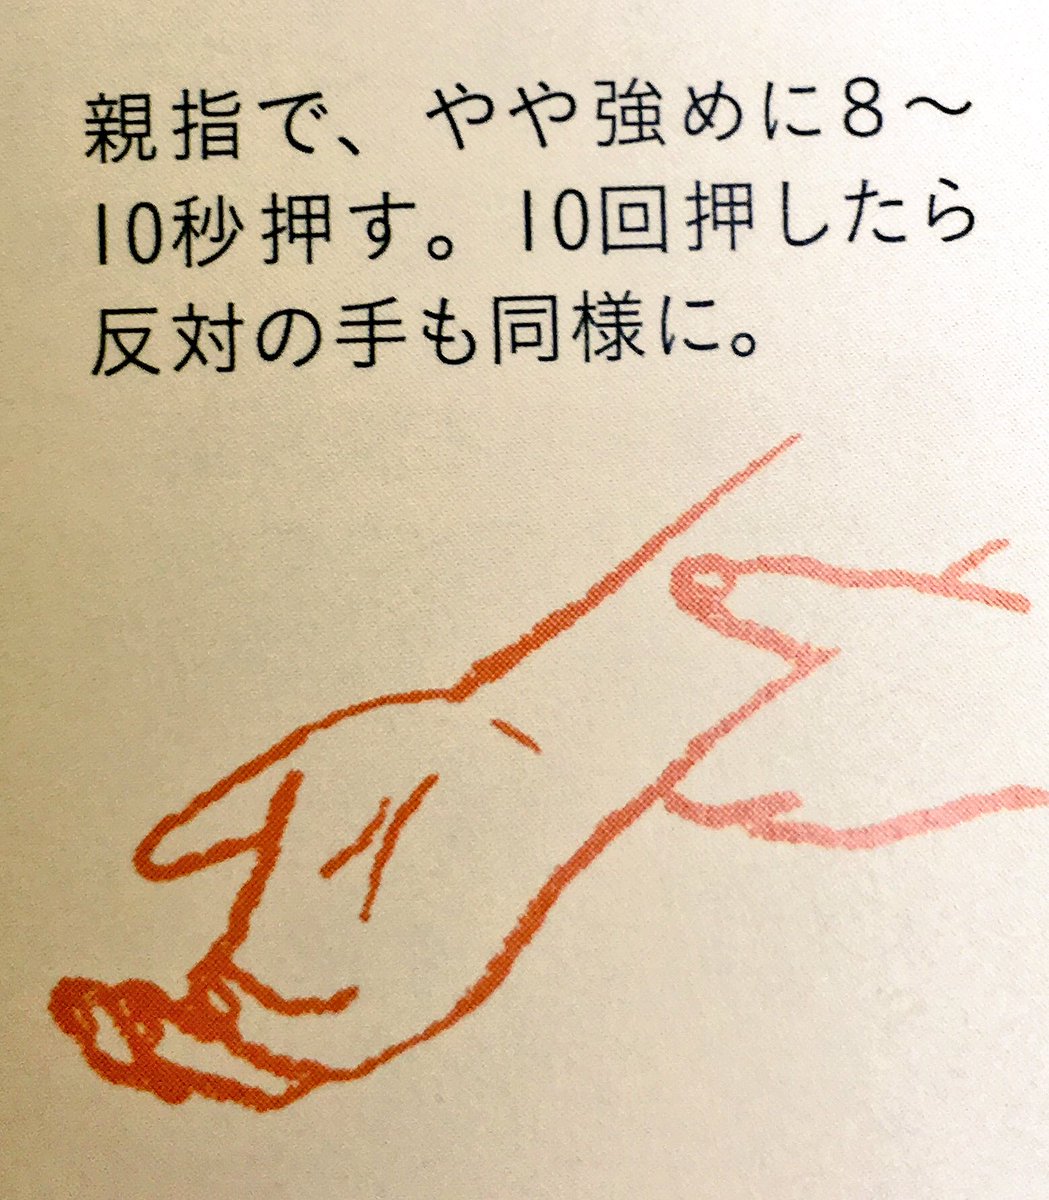 親指で、やや強めに8〜
10秒押す。10回押したら
反対の手も同様に。